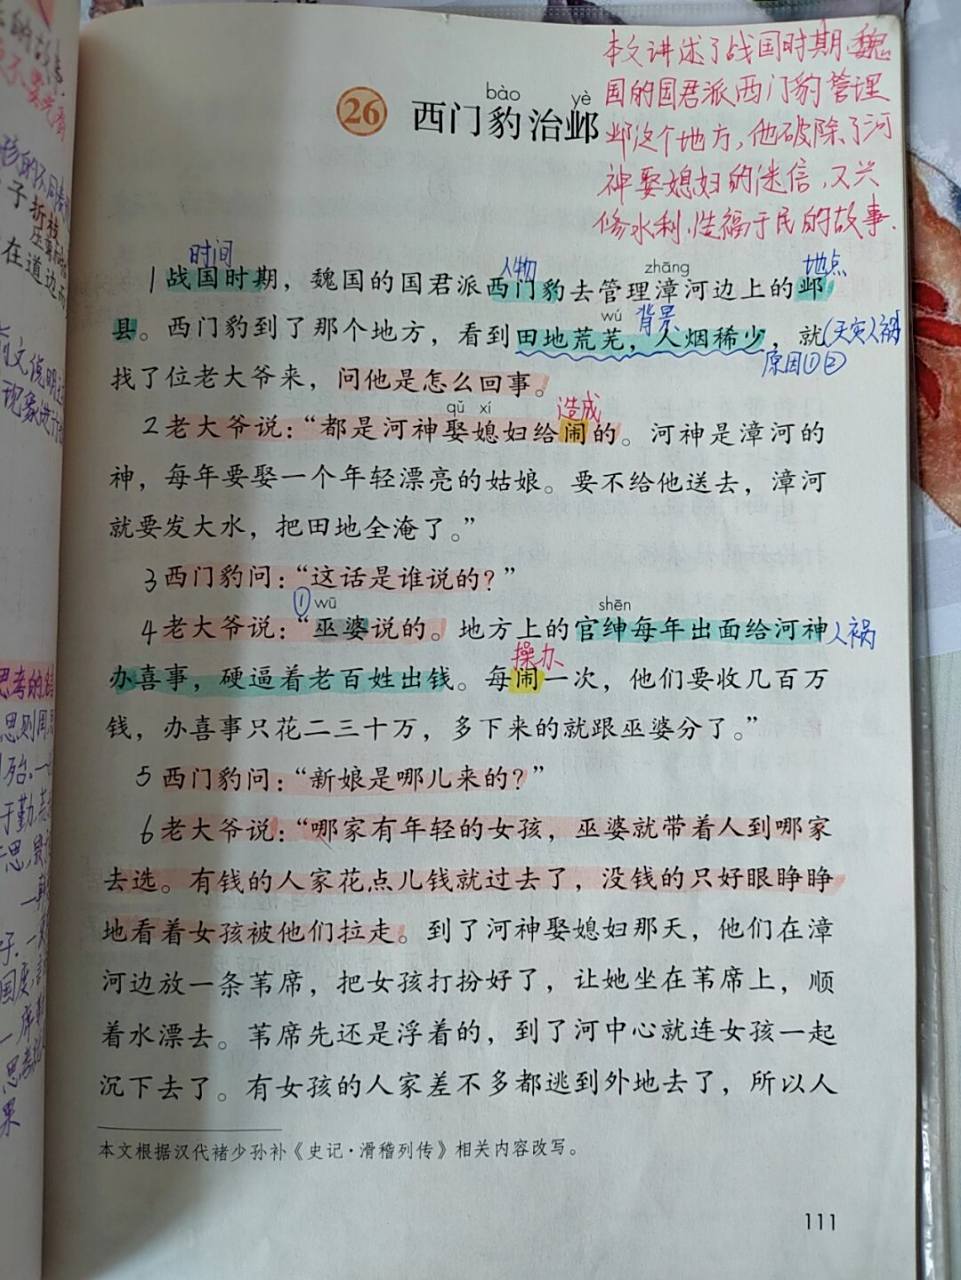 本文讲述了战国时期,魏
国的国君派西门豹管理
邺这个地方,他破除了河
神娶媳妇的迷信,又兴
修水利,造福于民的故事.
bào yè
26 西门豹治邺
时间 人物 zhāng 地点
1 战国时期，魏国的国君派西门豹去管理漳河边上的邺
wú 背景
县。西门豹到了那个地方，看到田地荒芜，人烟稀少，就(天灾人祸
原因①②
找了位老大爷来，问他是怎么回事。
qǔ xí 造成
2 老大爷说：“都是河神娶媳妇给闹的。河神是漳河的
神，每年要娶一个年轻漂亮的姑娘。要不给他送去，漳河
就要发大水，把田地全淹了。”
3 西门豹问：“这话是谁说的？”
① wū shēn
4 老大爷说：“巫婆说的。地方上的官绅每年出面给河神人祸
操办
办喜事，硬逼着老百姓出钱。每闹一次，他们要收几百万
钱，办喜事只花二三十万，多下来的就跟巫婆分了。”
5 西门豹问：“新娘是哪儿来的？”
6 老大爷说：“哪家有年轻的女孩，巫婆就带着人到哪家
去选。有钱的人家花点儿钱就过去了，没钱的只好眼睁睁
地看着女孩被他们拉走。到了河神娶媳妇那天，他们在漳
河边放一条苇席，把女孩打扮好了，让她坐在苇席上，顺
着水漂去。苇席先还是浮着的，到了河中心就连女孩一起
沉下去了。有女孩的人家差不多都逃到外地去了，所以人
本文根据汉代褚少孙补《史记·滑稽列传》相关内容改写。
111